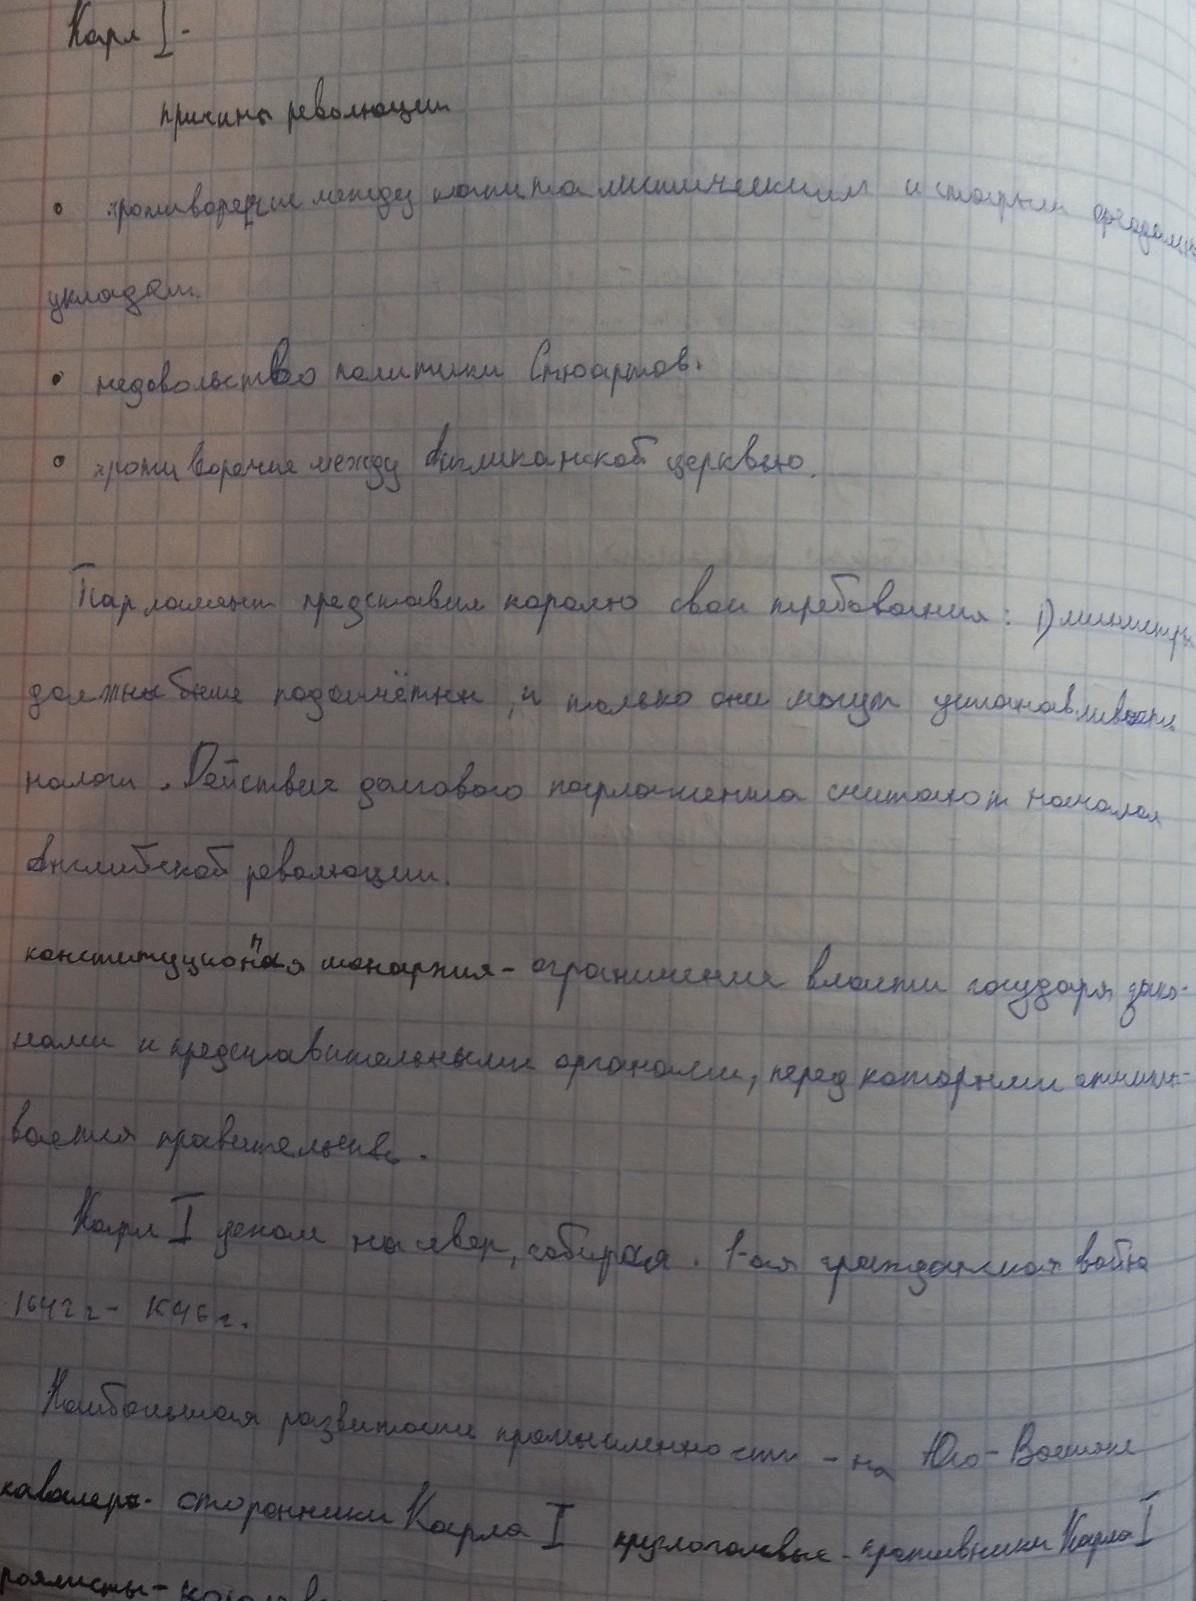 Карл I -
причины революции
• противоречие между капиталистическим и старым
укладам.
• недовольство политики Стюартов.
• противоречия между Англиканской церквью.
Парламент представил королю свои требования: 1) министры
должны быть подотчётны, и только они могут устанавливать
налоги. Действия долгового парламента считают началом
Английской революции.
конституционная монархия - ограничение власти государя зако-
нами и представительными органами, перед которыми отчиты-
вается правительство.
Карл I на север, собирая. 1-ая гражданская война
1642 г - 1646 г.
Наибольшая развитости промышленности - на Юго-Востоке
кавалеры - сторонники Карла I круглоголовые - противники Карла I
роялисты -